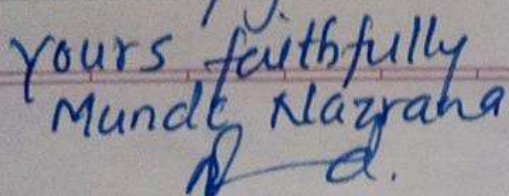 yours faithfully
Munde Nazrana